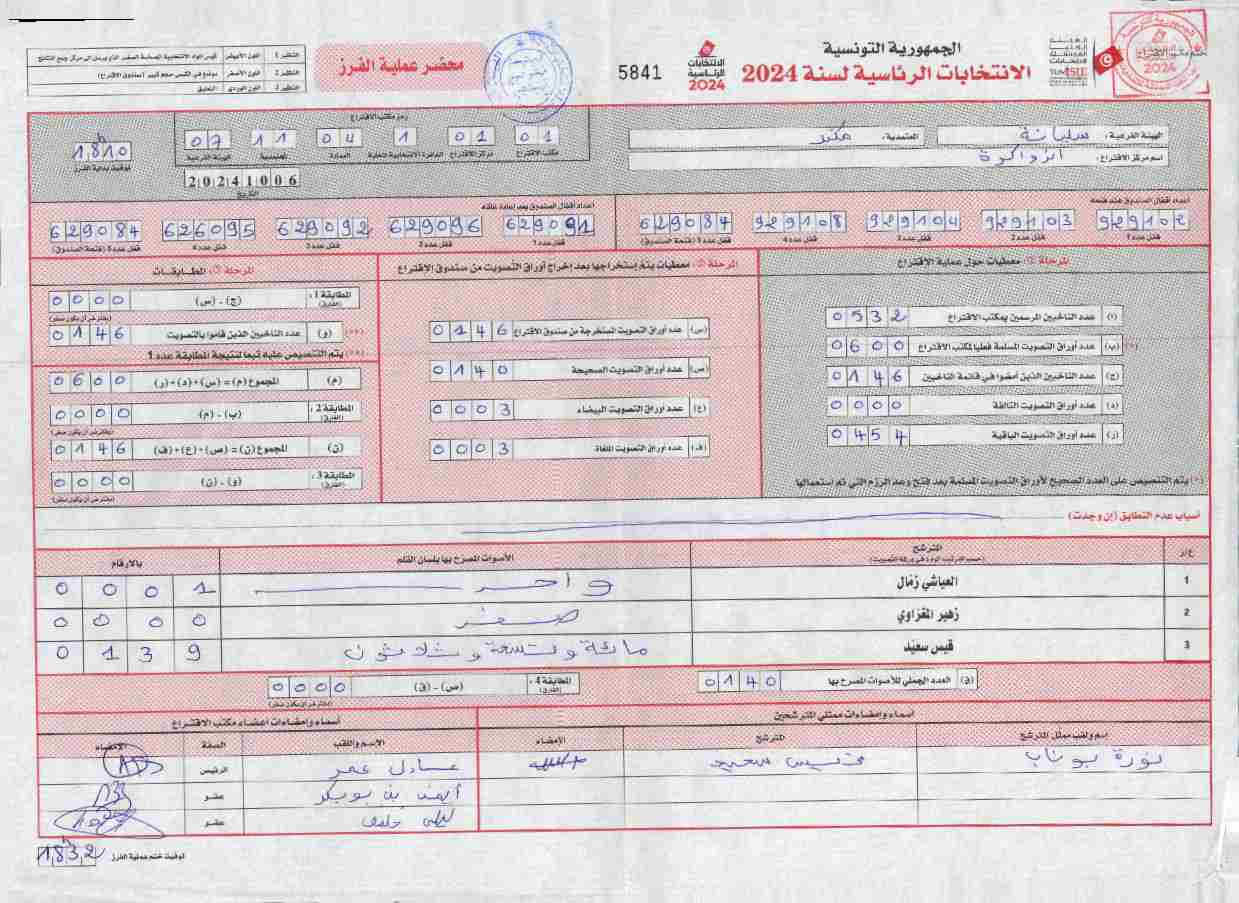 الجمهورية التونسية
الانتخابات الرئاسية لسنة 2024
الانتخابات الرئاسية 2024
5841
محضر عملية الفرز
النظير 1 اللون الأبيض
النظير 2 اللون الأصفر
النظير 3 اللون الوردي التعليق
الهيئة الفرعية: سليانة
المعتمدية: مكثر
اسم مركز الاقتراع:
رمز مكتب الاقتراع
01 01 1 04 11 07
مكتب الاقتراع مركز الاقتراع الدائرة الانتخابية المحلية العمادة المعتمدية الهيئة الفرعية
20241006
التاريخ
18h10
توقيت بداية الفرز
أعداد أقفال الصندوق عند فتحه
929102 929103 929104 929108 629084
قفل عدد 1 قفل عدد 2 قفل عدد 3 قفل عدد 4 قفل عدد 5 (فتحة الصندوق)
أعداد أقفال الصندوق بعد إعادة غلقه
629091 629096 629092 626095 629084
قفل عدد 1 قفل عدد 2 قفل عدد 3 قفل عدد 4 قفل عدد 5 (فتحة الصندوق)
المرحلة ①: معطيات حول عملية الاقتراع
(ا) عدد الناخبين المرسمين بمكتب الاقتراع 0532
(*) (ب) عدد أوراق التصويت المسلمة فعليا لمكتب الاقتراع 0600
(ج) عدد الناخبين الذين أمضوا في قائمة الناخبين 0146
(د) عدد أوراق التصويت التالفة 0000
(ر) عدد أوراق التصويت الباقية 0454
(*) يتم التنصيص على العدد الصحيح لأوراق التصويت المسلمة بعد فتح وعد الرزم التي تم استعمالها
المرحلة ②: معطيات يتم إستخراجها بعد إخراج أوراق التصويت من صندوق الاقتراع
(س) عدد أوراق التصويت المستخرجة من صندوق الاقتراع 0146
(ص) عدد أوراق التصويت الصحيحة 0140
(ع) عدد أوراق التصويت البيضاء 0003
(ف) عدد أوراق التصويت الملغاة 0003
المرحلة ③: المطابقات
المطابقة 1: (الفارق) (ج) - (س) 0000
(يفترض أن يكون صفر)
(**) (و) عدد الناخبين الذين قاموا بالتصويت 0146
(**) يتم التنصيص عليه تبعا لنتيجة المطابقة عدد 1
(م) المجموع (م) = (س) + (د) + (ر) 0600
المطابقة 2: (الفارق) (ب) - (م) 0000
(يفترض أن يكون صفر)
(ن) المجموع (ن) = (ص) + (ع) + (ف) 0146
المطابقة 3: (الفارق) (و) - (ن) 0000
(يفترض أن يكون صفر)
أسباب عدم التطابق (إن وجدت)
ع/ر المترشح (حسب الترتيب الوارد في ورقة التصويت) الأصوات المصرح بها بلسان القلم بالأرقام
1 العياشي زمّال واحد 0001
2 زهير المغزاوي صفر 0000
3 قيس سعيّد مائة وتسعة وثلاثون 0139
(ق) العدد الجملي للأصوات المصرح بها 0140
المطابقة 4: (الفارق) (ص) - (ق) 0000
(يفترض أن يكون صفر)
أسماء وإمضاءات ممثلي المترشحين
اسم ولقب ممثل المترشح المترشح الإمضاء
نورة بوناب قيس سعيد
أسماء وإمضاءات أعضاء مكتب الاقتراع
الإسم واللقب الصفة الإمضاء
عادل عمر الرئيس
أيمن بن بوبكر عضو
ليلى عضو
توقيت ختم عملية الفرز 18h32